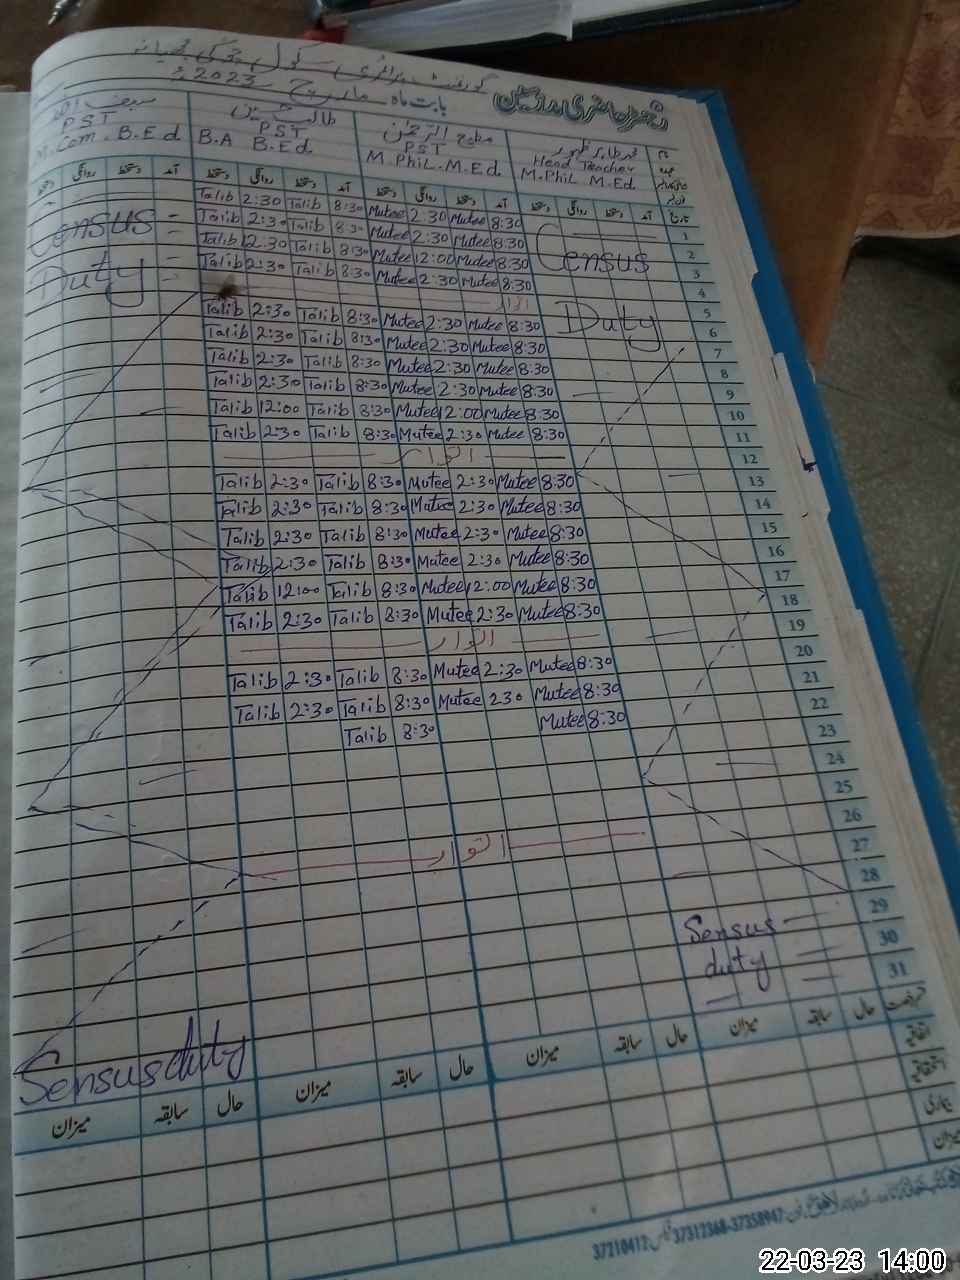 گورنمنٹ پرائمری سکول
رجسٹر حاضری مدرسین بابت ماہ مارچ 2023ء
محمد طاہر ظہور
Head Teacher
M.Phil M.Ed
مطیع الرحمٰن
PST
M.Phil.M.Ed
طالب حسین
PST
B.A B.Ed
سیف اللہ
PST
M.Com. B.Ed
تاریخ آمد دستخط روانگی دستخط آمد دستخط روانگی دستخط آمد دستخط روانگی دستخط آمد دستخط روانگی دستخط
Talib 2:30 Talib 8:30 Mutee 2:30 Mutee 8:30 1
Talib 2:30 Talib 8:30 Mutee 2:30 Mutee 8:30 2
Talib 12:30 Talib 8:30 Mutee 12:00 Mutee 8:30 3
Talib 2:30 Talib 8:30 Mutee 2:30 Mutee 8:30 4
Census
Duty
Census
Duty
اتوار 5
Talib 2:30 Talib 8:30 Mutee 2:30 Mutee 8:30 6
Talib 2:30 Talib 8:30 Mutee 2:30 Mutee 8:30 7
Talib 2:30 Talib 8:30 Mutee 2:30 Mutee 8:30 8
Talib 2:30 Talib 8:30 Mutee 2:30 Mutee 8:30 9
Talib 12:00 Talib 8:30 Mutee 12:00 Mutee 8:30 10
Talib 2:30 Talib 8:30 Mutee 2:30 Mutee 8:30 11
اتوار 12
Talib 2:30 Talib 8:30 Mutee 2:30 Mutee 8:30 13
Talib 2:30 Talib 8:30 Mutee 2:30 Mutee 8:30 14
Talib 2:30 Talib 8:30 Mutee 2:30 Mutee 8:30 15
Talib 2:30 Talib 8:30 Mutee 2:30 Mutee 8:30 16
Talib 12:00 Talib 8:30 Mutee 12:00 Mutee 8:30 17
Talib 2:30 Talib 8:30 Mutee 2:30 Mutee 8:30 18
اتوار 19
Talib 2:30 Talib 8:30 Mutee 2:30 Mutee 8:30 20
Talib 2:30 Talib 8:30 Mutee 230 Mutee 8:30 21
Talib 8:30 Mutee 8:30 22
23
24
25
اتوار 26
27
28
29
30
31
Sensus
duty
Sensus duty
حال سابقہ میزان حال سابقہ میزان حال سابقہ میزان
اتفاقیہ
بیماری
میزان
37210412 37312368-37358947
22-03-23 14:00